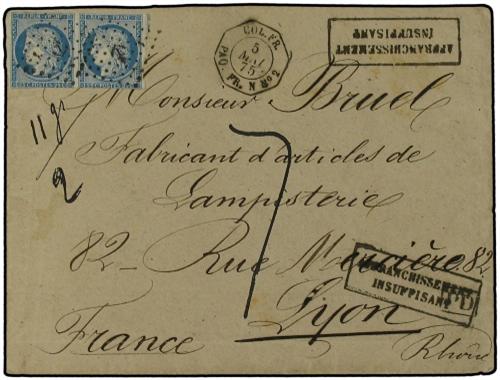 REPUB. FRANC. REPUB. FRANC.
25 C. POSTES 25 C. POSTES
COL. FR.
5
MAI
75
PAQ. FR. N Nº 2
AFFRANCHISSEMENT
INSUFFISANT
11 gr
2
7
Monsieur Bruel
Fabricant d'articles de
Lampisterie
82 - Rue Mercière. 82
AFFRANCHISSEMENT
INSUFFISANT
Lyon
France
Rhône